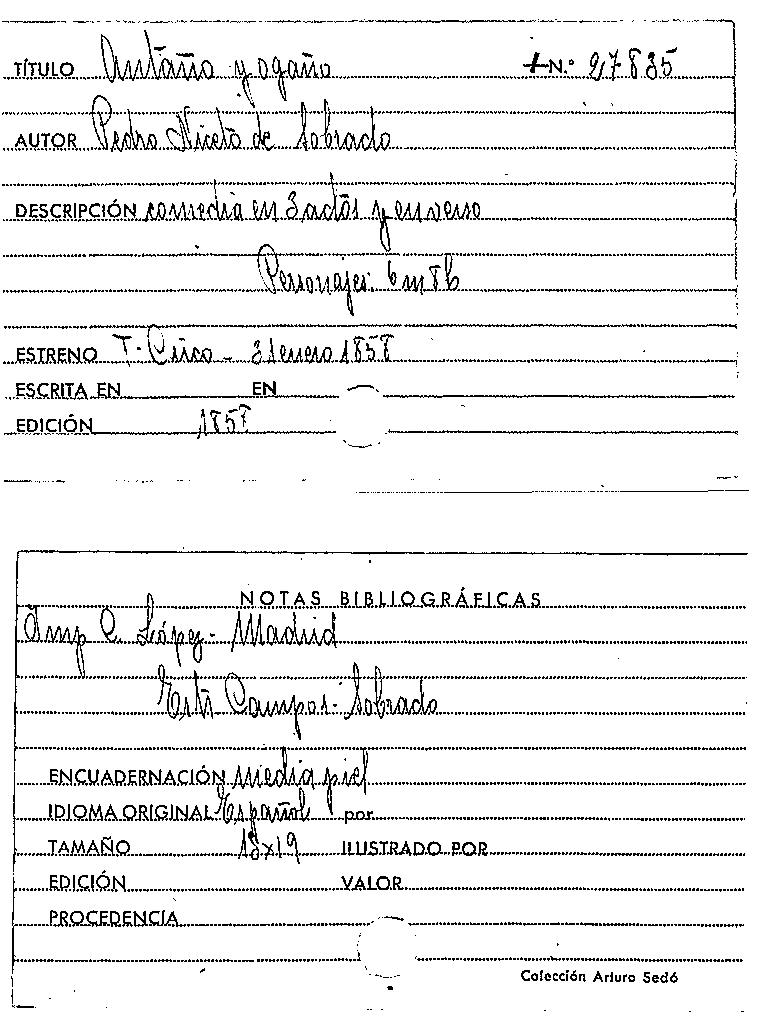 TÍTULO Antaño y ogaño N.º 27835
AUTOR Pedro Niceto de Sobrado
DESCRIPCIÓN comedia en 3 actos y en verso
Personajes: 6 m 8 h
ESTRENO T. Circo - 31 enero 1858
ESCRITA EN EN
EDICIÓN 1858
NOTAS BIBLIOGRÁFICAS
Imp C. López - Madrid
Campos - Sobrado
ENCUADERNACIÓN media piel
IDIOMA ORIGINAL Español por
TAMAÑO 13x19 ILUSTRADO POR
EDICIÓN VALOR
PROCEDENCIA
Colección Arturo Sedó